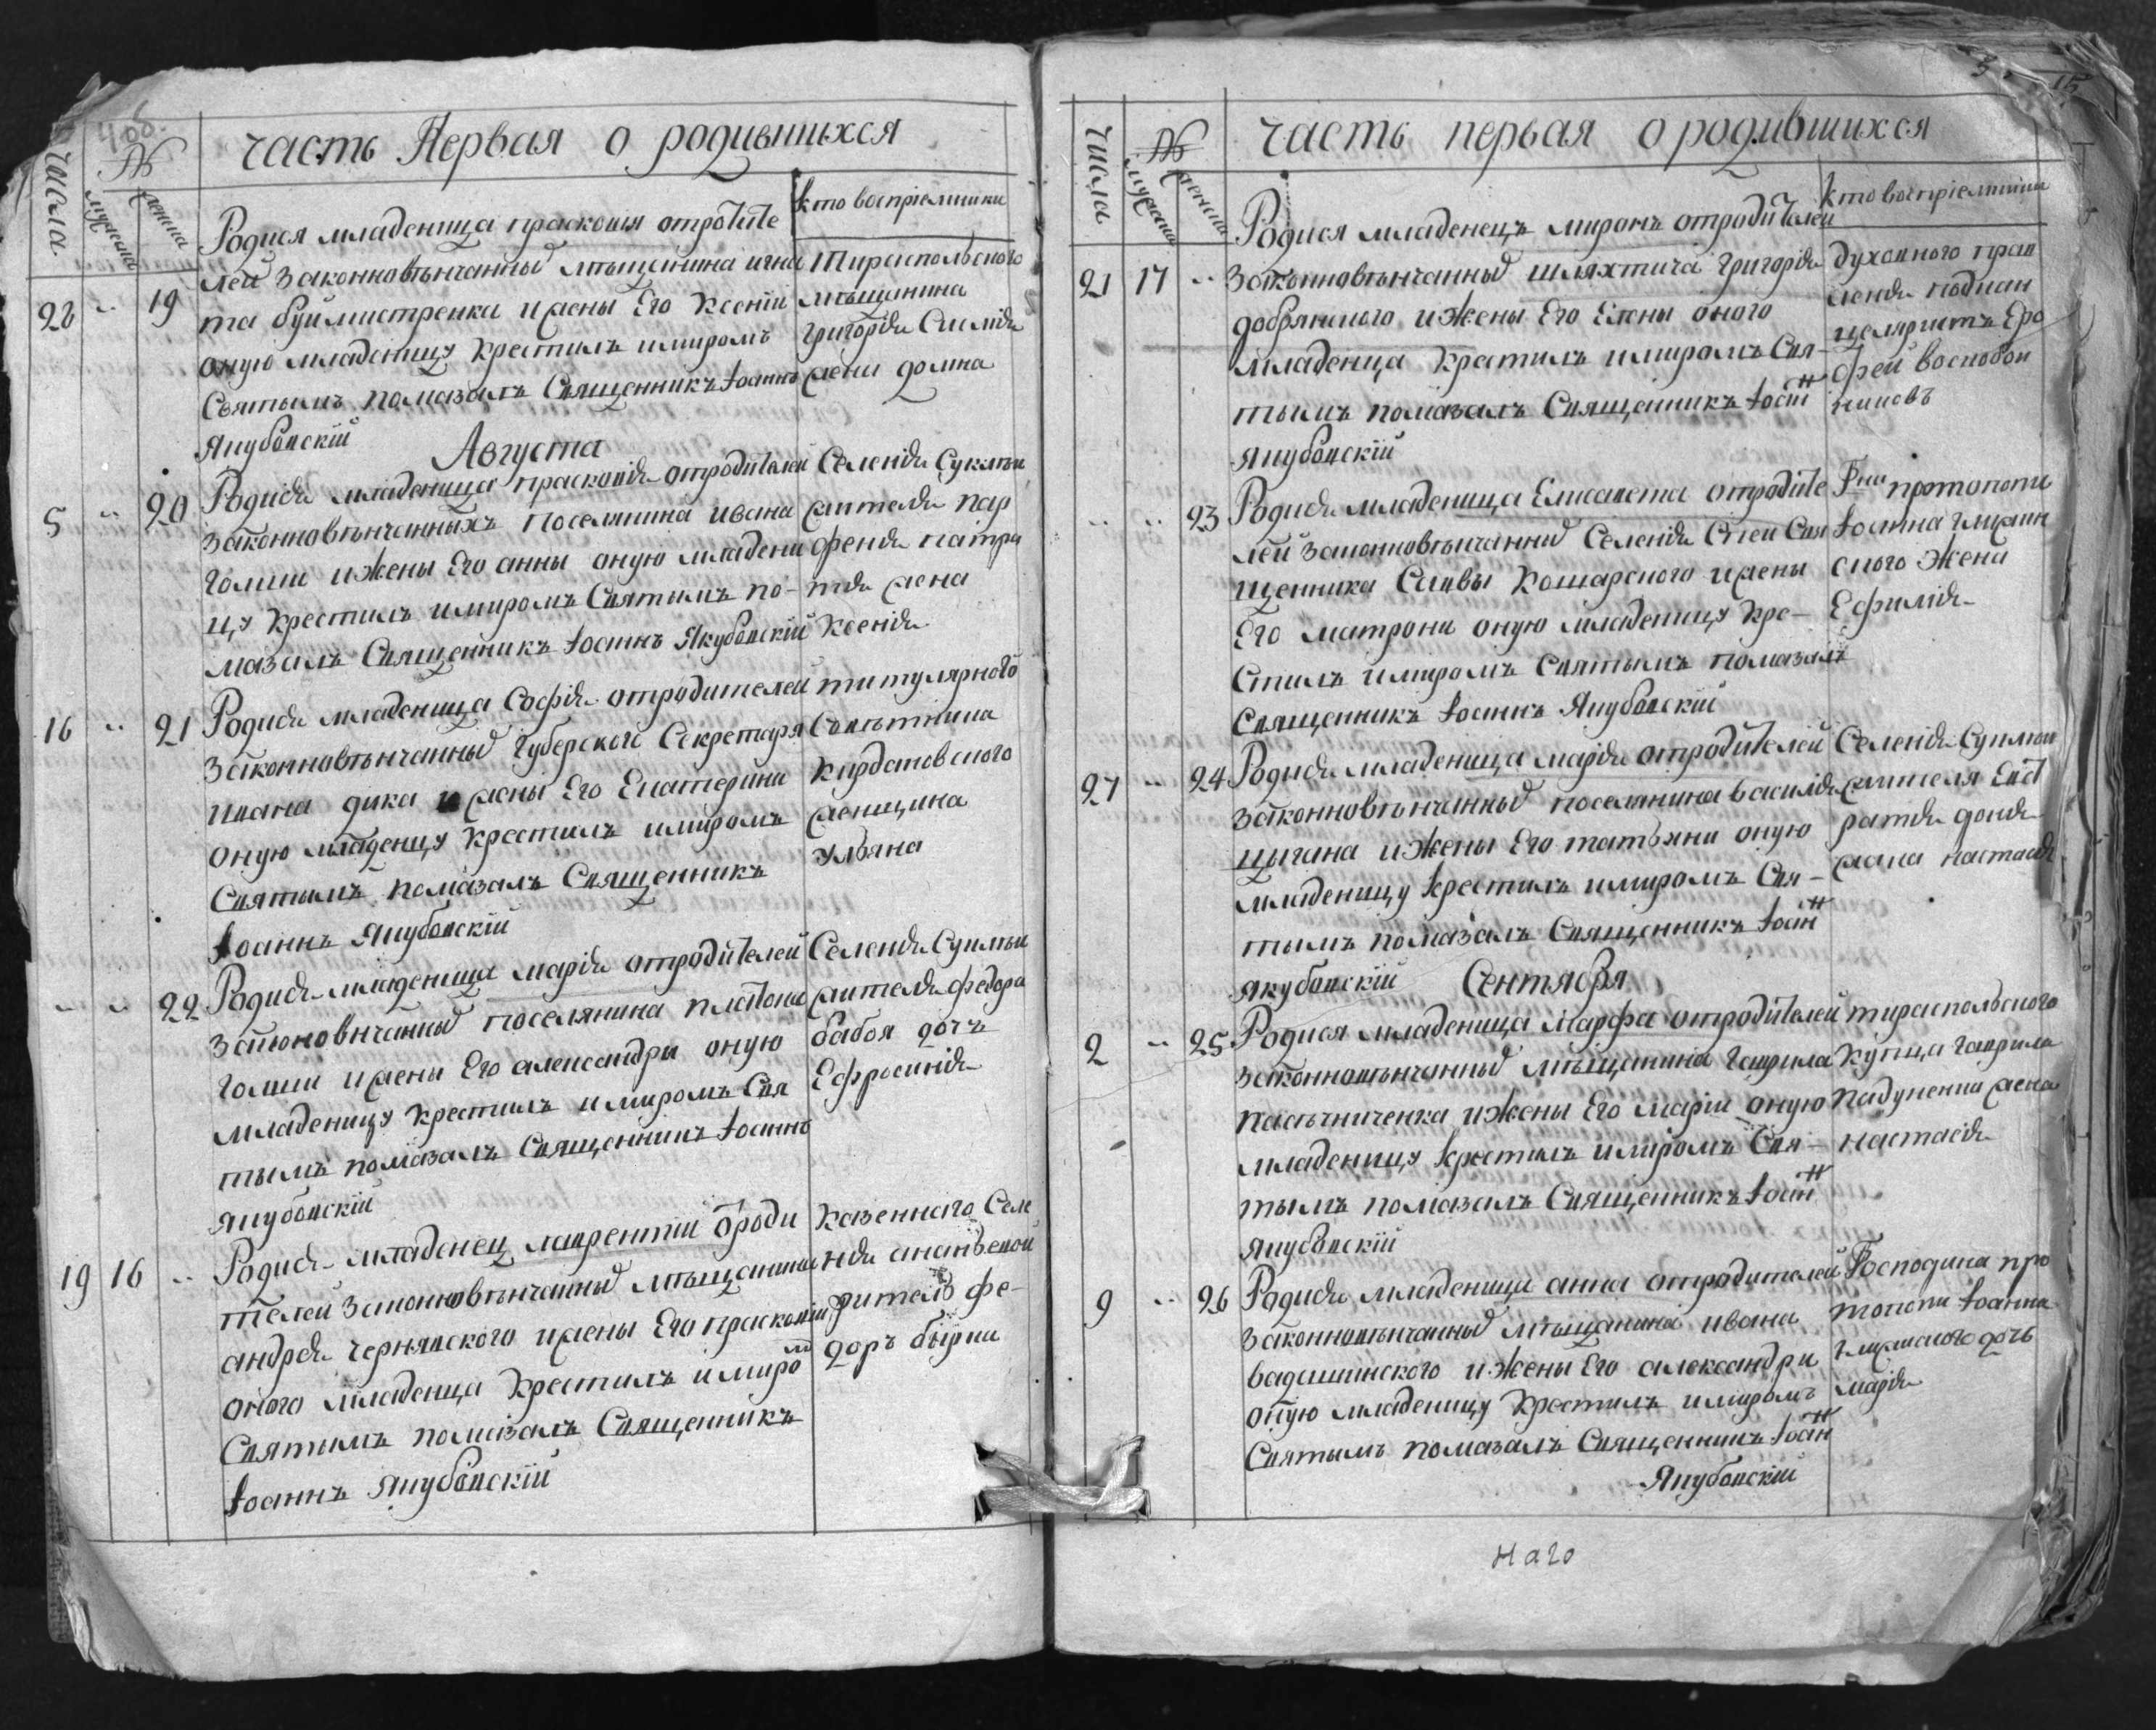 часть Первая о родившихся
числа
№
мужеска
женска
кто воспріемники
28 19
Родися младеница прасковія отродите
лей законновѣнчанныхъ мѣщанина игна
та буймистренка ижены Его Ксеніи
оную младеницу крестилъ имиромъ
Святымъ помазалъ Священникъ Іоаннъ
Якубовскій
Тираспольского
мѣщанина
григорія
жени домна
Августа
5 20
Родися младеница прасковія отродителей
законновѣнчанныхъ поселянина ивана
ижены Его анны оную младени
цу крестилъ имиромъ Святымъ по-
мазалъ Священникъ Іоаннъ Якубовскій
Селенія Суклеи
жителя пар
фенія
жена
Ксенія
16 21
Родися младеница Софія отродителей
законновѣнчанныхъ Губерского Секретаря
ивана дика ижены Его Екатерини
оную младеницу крестилъ имиромъ
Святымъ помазалъ Священникъ
Іоаннъ Якубовскій
титулярного
Совѣтника
женщина
Ульяна
22
Родися младеница марія отродителей
законовнчанныхъ поселянина платона
ижены Его александри оную
младеницу крестилъ имиромъ Свя
тымъ помазалъ Священникъ Іоаннъ
Якубовскій
Селенія Суклеи
жителя федора
бабоя дочъ
Ефросинія
19 16
Родися младенец лаврентіи ѿроди
телей законновѣнчанныхъ мѣщанина
андрея чернявского ижены Его праскокіи
оного младенца крестилъ имиро
Святымъ помазалъ Священникъ
Іоаннъ Якубовскій
Казенного Селе
нія ананьевой
житель фе-
доръ
3
15
часть первая о родившихся
числа
№
мужеска
женска
кто воспріемники
21 17
Родися младенецъ миронъ отродителей
законновѣнчанныхъ шляхтича григорія
добрянского ижены Его Елены оного
младенца крестилъ имиромъ Свя-
тымъ помазалъ Священникъ Іоанн
Якубовскій
духовного прав
ленія подкан
целяристъ Еро
фей
23
Родися младеница Елисавета отродите
лей законновѣнчанныхъ Селенія Свя
щенника Саввы Кошарского ижены
Его матрони оную младеницу кре-
стилъ имиромъ Святымъ помазалъ
Священникъ Іоаннъ Якубовскій
протопопи
Іоанна
ского жена
Ефимія
27 24
Родися младеница марія отродителей
законновѣнчанныхъ поселянина василія
цыгана ижены Его татьяни оную
младеницу крестилъ имиромъ Свя-
тымъ помазалъ Священникъ Іоанн
Якубовскій
Селенія Суклеи
жителя Евст
ратія доня
жена настасія
Сентября
2 25
Родися младеница Марфа отродителей
законновѣнчанныхъ мѣщанина гаврила
пасѣчниченка ижены Его маріи оную
младеницу крестилъ имиромъ Свя-
тымъ помазалъ Священникъ Іоанн
Якубовскій
тираспольского
купца гаврила
падуненки жена
настасія
9 26
Родися младеница анна отродителей
законновѣнчанныхъ мѣщанина ивана
ижены Его александри
оную младеницу крестилъ имиромъ
Святымъ помазалъ Священникъ Іоанн
Якубовскій
Господина про
топопи Іоанна
дочъ
марія
наго